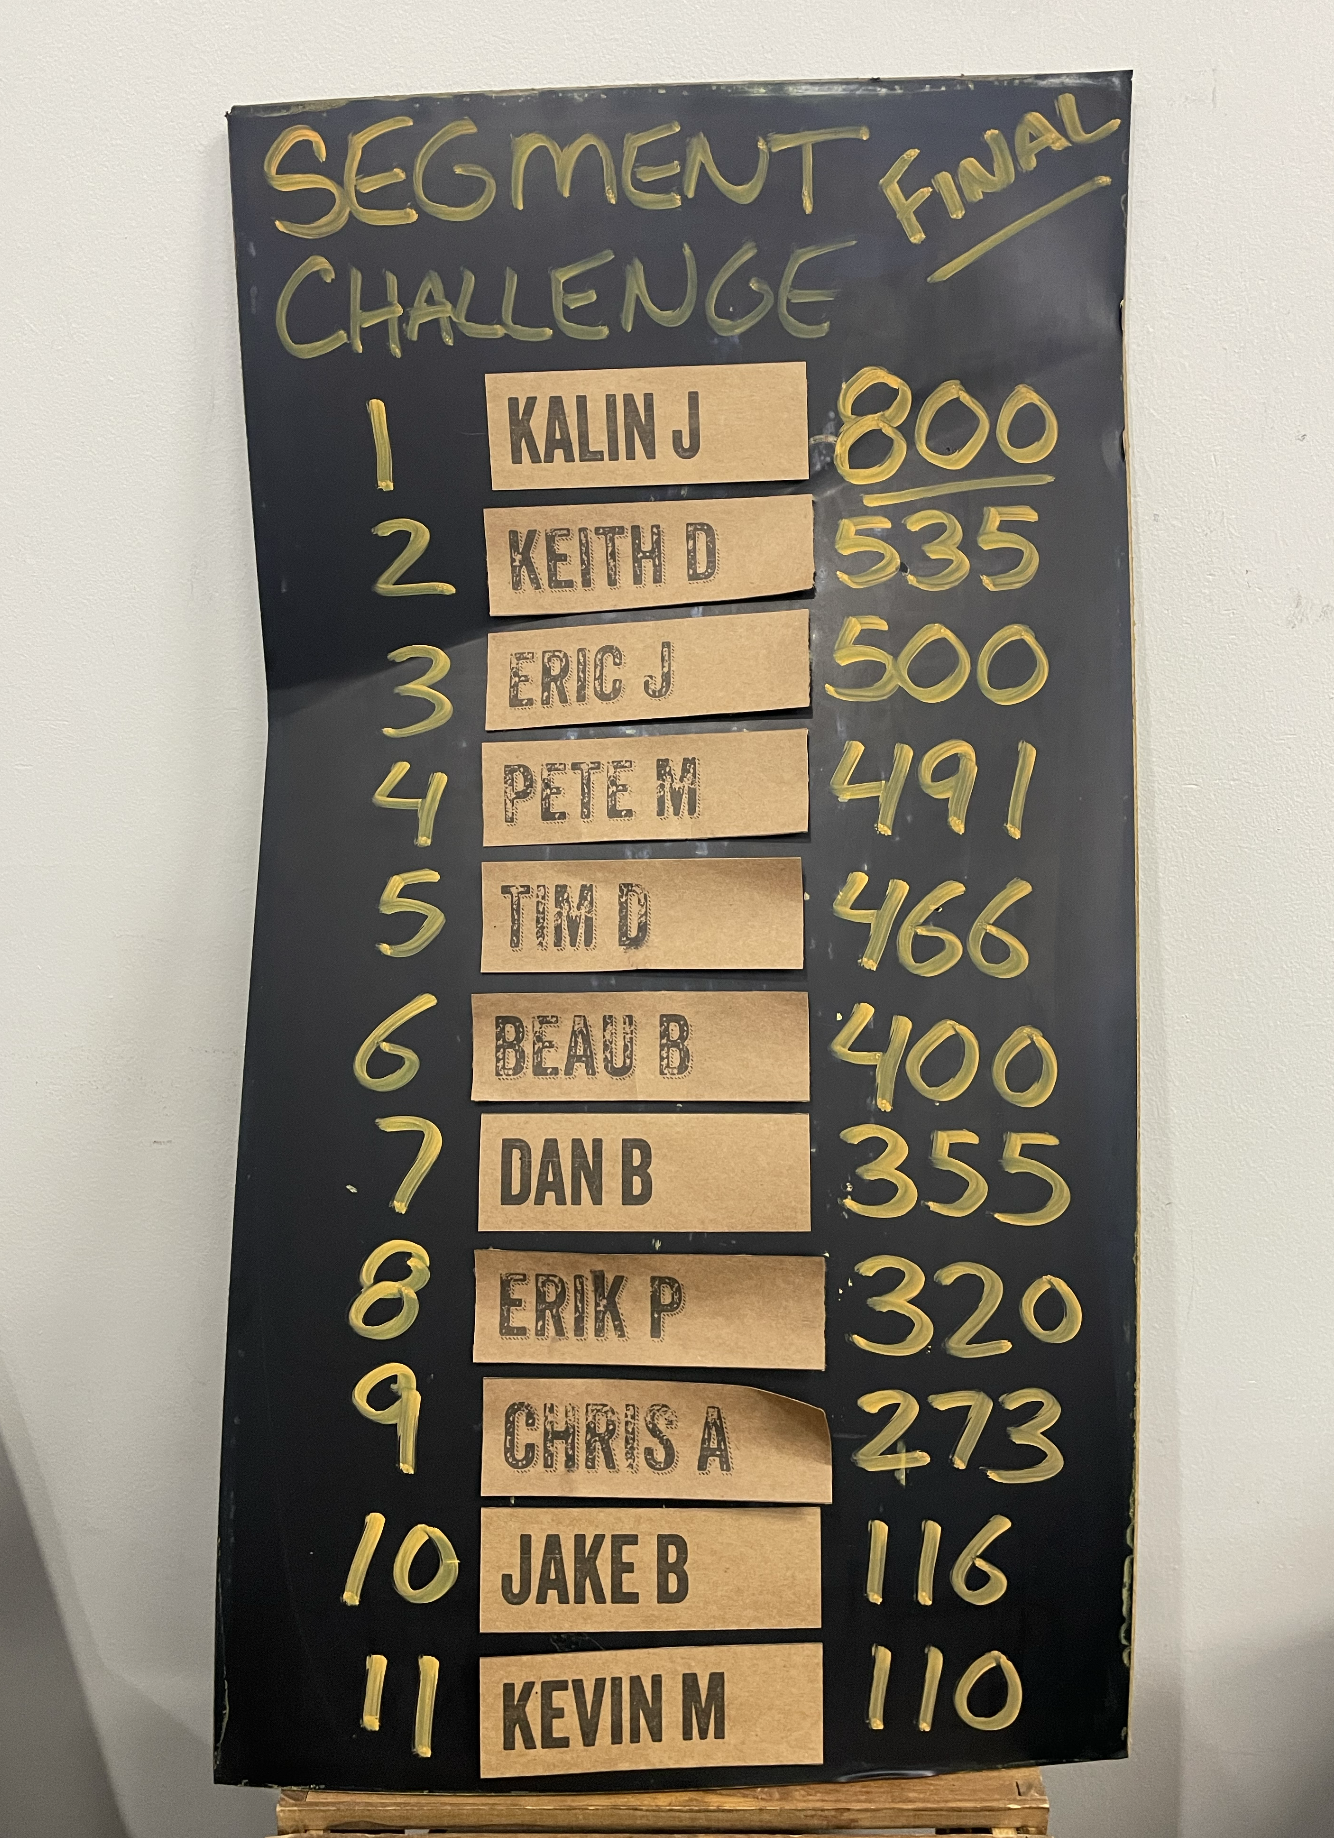 SEGMENT FINAL
CHALLENGE
1 KALIN J 800
2 KEITH D 535
3 ERIC J 500
4 PETE M 491
5 TIM D 466
6 BEAU B 400
7 DAN B 355
8 ERIK P 320
9 CHRIS A 273
10 JAKE B 116
11 KEVIN M 110